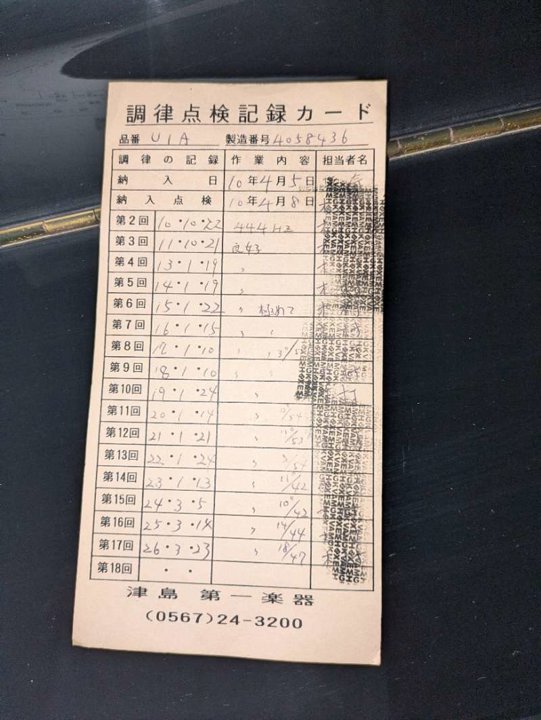 調律点検記録カード
品番 U1A 製造番号 4058436
調律の記録 作業内容 担当者名
納入日 10年4月5日
納入点検 10年4月8日
第2回 10・10・22 444HZ
第3回 11・10・21 良好
第4回 13・1・19 〃
第5回 14・1・19 〃
第6回 15・1・22 〃 極めて
第7回 16・1・15 〃 〃
第8回 17・1・10 〃 〃
第9回 18・1・10 〃 〃
第10回 19・1・24 〃 〃
第11回 20・1・14 〃
第12回 21・1・21 〃
第13回 22・1・24 〃
第14回 23・1・13 〃
第15回 24・3・5 〃
第16回 25・3・18 〃 14/44
第17回 26・3・23 〃 18/47
第18回 ・ ・
津島 第一楽器
(0567)24-3200